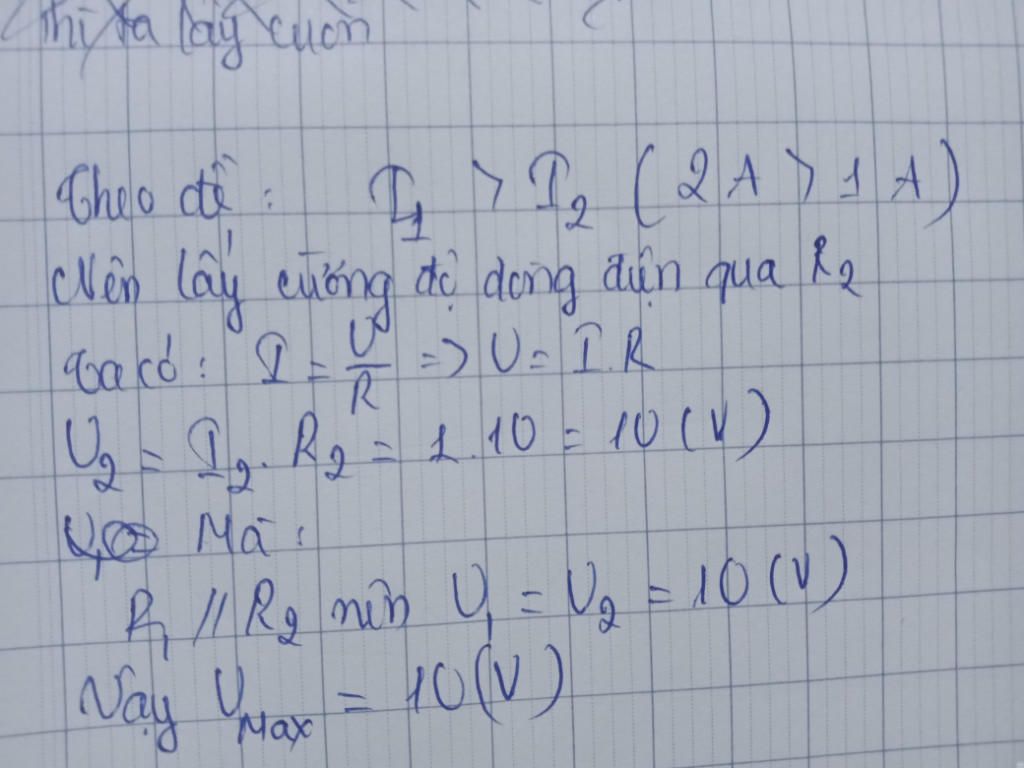 thì ta lấy cườn
Theo đề : I₁ > I₂ ( 2 A > 1 A )
Nên lấy cường độ dòng điện qua R₂
Ta có : I = U/R => U = I . R
U₂ = I₂ . R₂ = 1 . 10 = 10 (V)
Mà :
R₁ // R₂ nên U₁ = U₂ = 10 (V)
Vậy U Max = 10 (V)